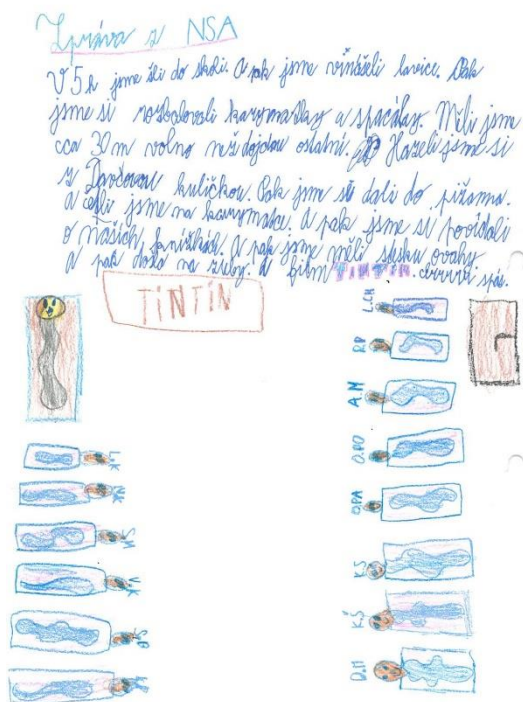 Zpráva z NSA
V 5h jme šli do školi. A pak jsme vináželi lavice. Pak
jsme si rozbalovali karymatky a spacáky. Měli jsme
cca 30 m volno než dojdou ostatní. Hazeli jsme si
z Davčovou kuličkou. Pak jsme se dali do pižama.
a cetli jsme na karymatce. A pak jsme si povídali
o našich knížkách. A pak jsme měli susku ovahy
a pak došlo na zuby. a film TINTIN. crrrrrr spát.
TINTIN
L.CH
R.P
A.M
O.PO
O.PA
K.S
K.Š
D.M
L.K
N.K
S.M
V.K
S.B